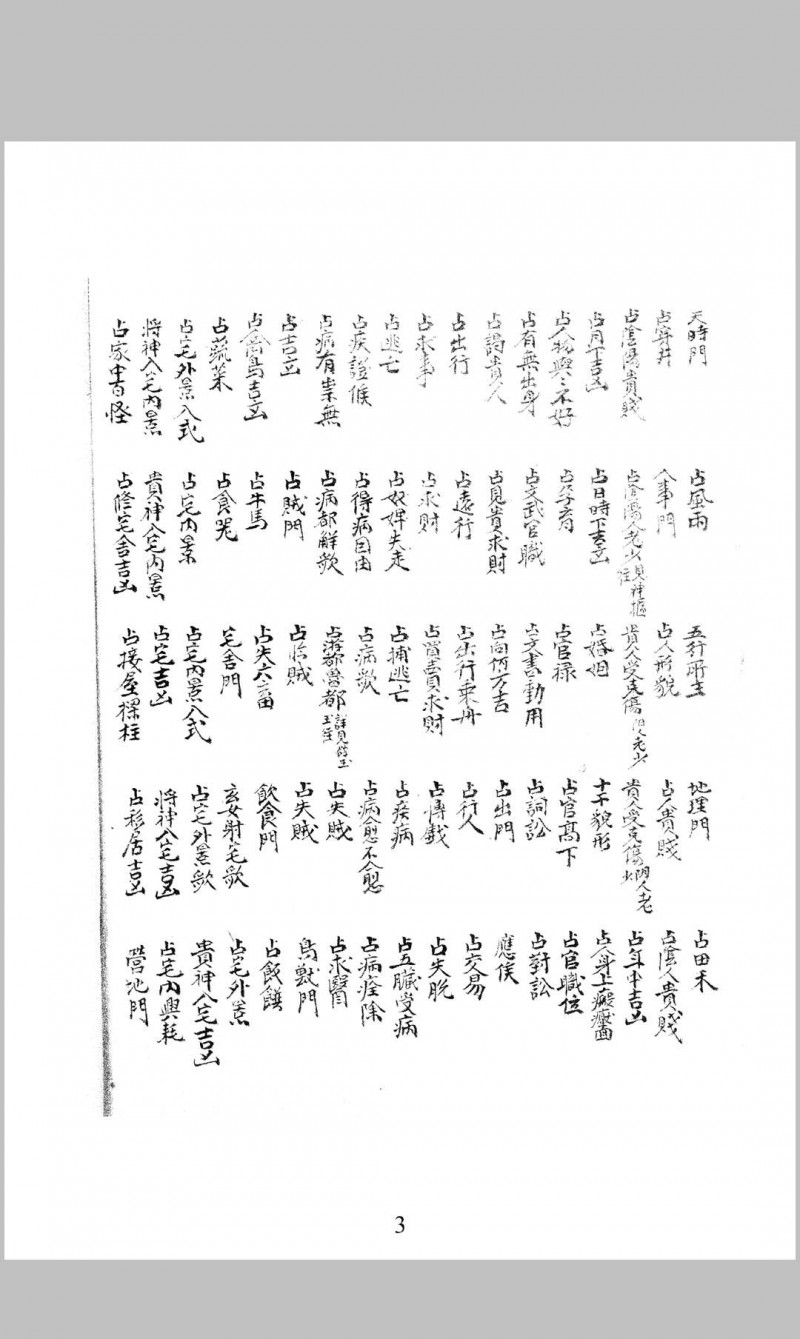 天時門 占風雨 五行所主 地理門 占田禾
占穿井 人事門 占人形貌 占人貴賤 占陰人貴賤
占陰陽貴賤 占陰陽人老少見神樞注 貴人受克傷人老少 貴人受克傷人老少 占年中吉凶
占月下吉凶 占日時下吉凶 占婚姻 十干貌形 占人身上瘢
占人物興〻不好 占孕育 占官禄 占官髙下 占官職位
占有無出身 占文武官職 占文書動用 占詞訟 占對訟
占謁貴人 占見貴求財 占向何方吉 占出門 應候
占出行 占遠行 占出行乘舟 占行人 占交易
占求事 占求財 占買賣求財 占博戱 占失脫
占逃亡 占奴婢失走 占捕逃亡 占疾病 占五臟受病
占疾證候 占得病因由 占病歌 占病愈不愈 占病痊除
占病有祟無 占病都解歌 占游都魯都詳見 占失賊 占求醫
占吉凶 占賊門 占临賊 占失賊 鳥獸門
占禽鳥吉凶 占牛馬 占失六畜 飲食門 占飯饌
占蔬菜 占食器 宅舍門 玄女射宅歌 占宅外景
占宅外景入式 占宅内景 占宅内景入式 占宅外景歌 貴神入宅吉凶
將神入宅内景 貴神入宅内景 占宅吉凶 將神入宅吉凶 占宅内興耗
占家中書怪 占修宅舍吉凶 占接屋樑柱 占移居吉凶 營地門
3